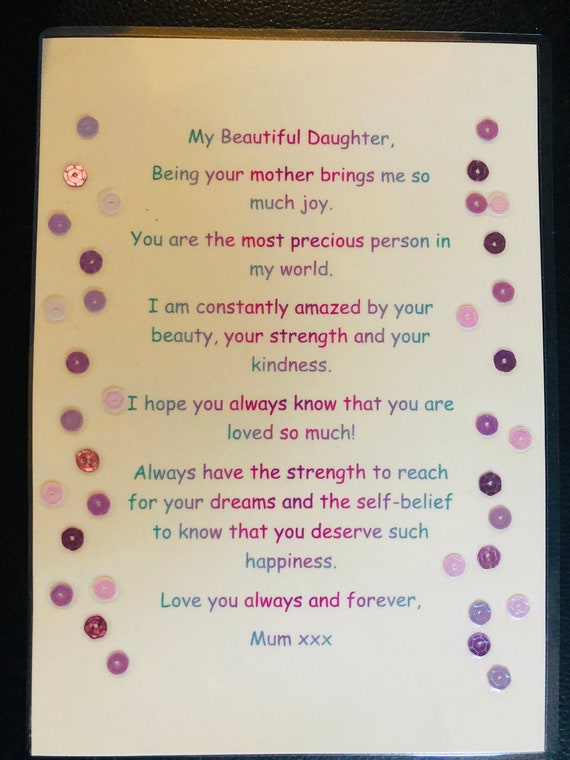 My Beautiful Daughter,
Being your mother brings me so
much joy.
You are the most precious person in
my world.
I am constantly amazed by your
beauty, your strength and your
kindness.
I hope you always know that you are
loved so much!
Always have the strength to reach
for your dreams and the self-belief
to know that you deserve such
happiness.
Love you always and forever,
Mum xxx